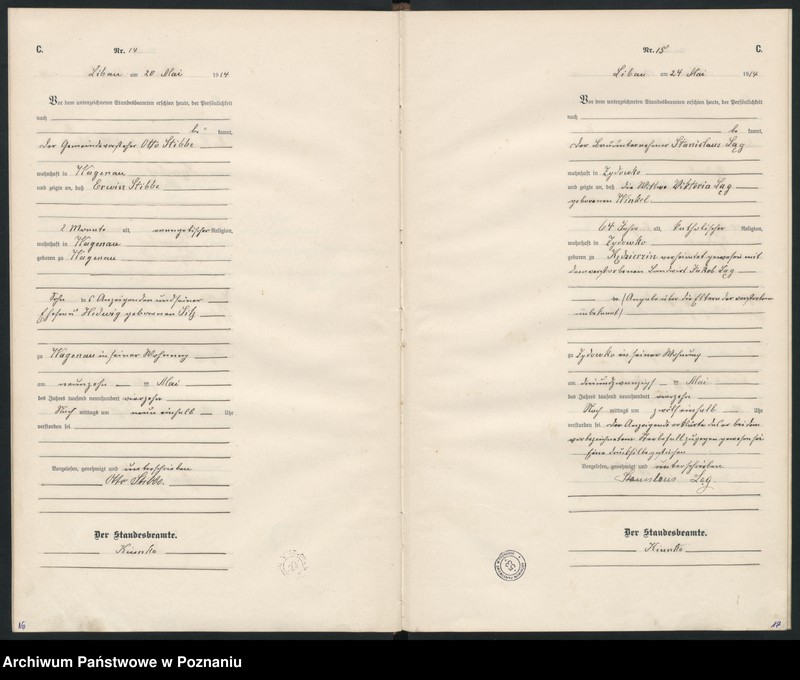 C.
Nr. 14
Libau am 20 Mai 1914
Vor dem unterzeichneten Standesbeamten erschien heute, der Persönlichkeit
nach
be kannt,
der Gemeindevorsteher Otto Stibbe
wohnhaft in Wagenau
und zeigte an, daß Erwin Stibbe
2 Monate alt, evangelischer Religion,
wohnhaft in Wagenau
geboren zu Wagenau
Sohn des Anzeigenden und seiner
Ehefrau Hedwig geborenen
zu Wagenau in seiner Wohnung
am neunzehn ten Mai
des Jahres tausend neunhundert vierzehn
Nach mittags um neun einhalb Uhr
verstorben sei
Vorgelesen, genehmigt und unterschrieben
Otto Stibbe.
Der Standesbeamte.
16
Nr. 15
C.
Libau am 24 Mai 1914
Vor dem unterzeichneten Standesbeamten erschien heute, der Persönlichkeit
nach
be kannt,
der Bauunternehmer Stanislaus Ląg
wohnhaft in Zydowko
und zeigte an, daß die Witwe Viktoria Ląg
geborenen Winkel
64 Jahre alt, katholischer Religion,
wohnhaft in Zydowko
geboren zu verheiratet gewesen mit
dem verstorbenen Landwirt Jakob Ląg
(Angabe über die Eltern der Verstorbenen
unbekannt)
zu Zydowko in seiner Wohnung
am dreiundzwanzigsten Mai
des Jahres tausend neunhundert vierzehn
Nach mittags um zwölf einhalb Uhr
verstorben sei. Der Anzeigende erklärte daß er bei dem
vorbezeichneten Sterbefall zugegen gewesen sei
Vorgelesen, genehmigt und unterschrieben
Stanislaus Ląg
Der Standesbeamte.
17
Archiwum Państwowe w Poznaniu